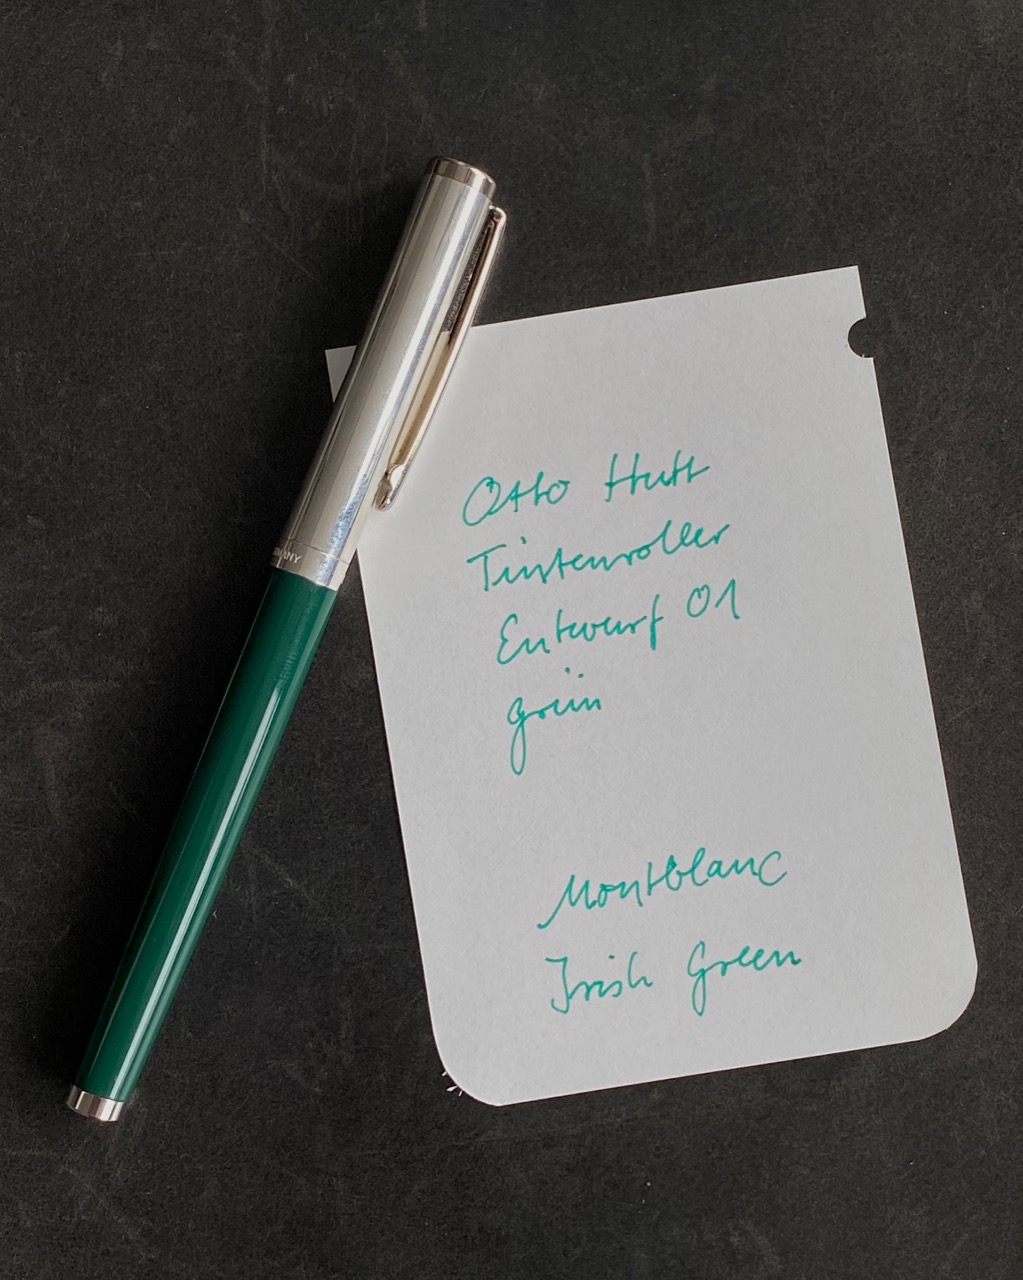 Otto Hutt
Tintenroller
Entwurf 01
grün
Montblanc
Irish Green